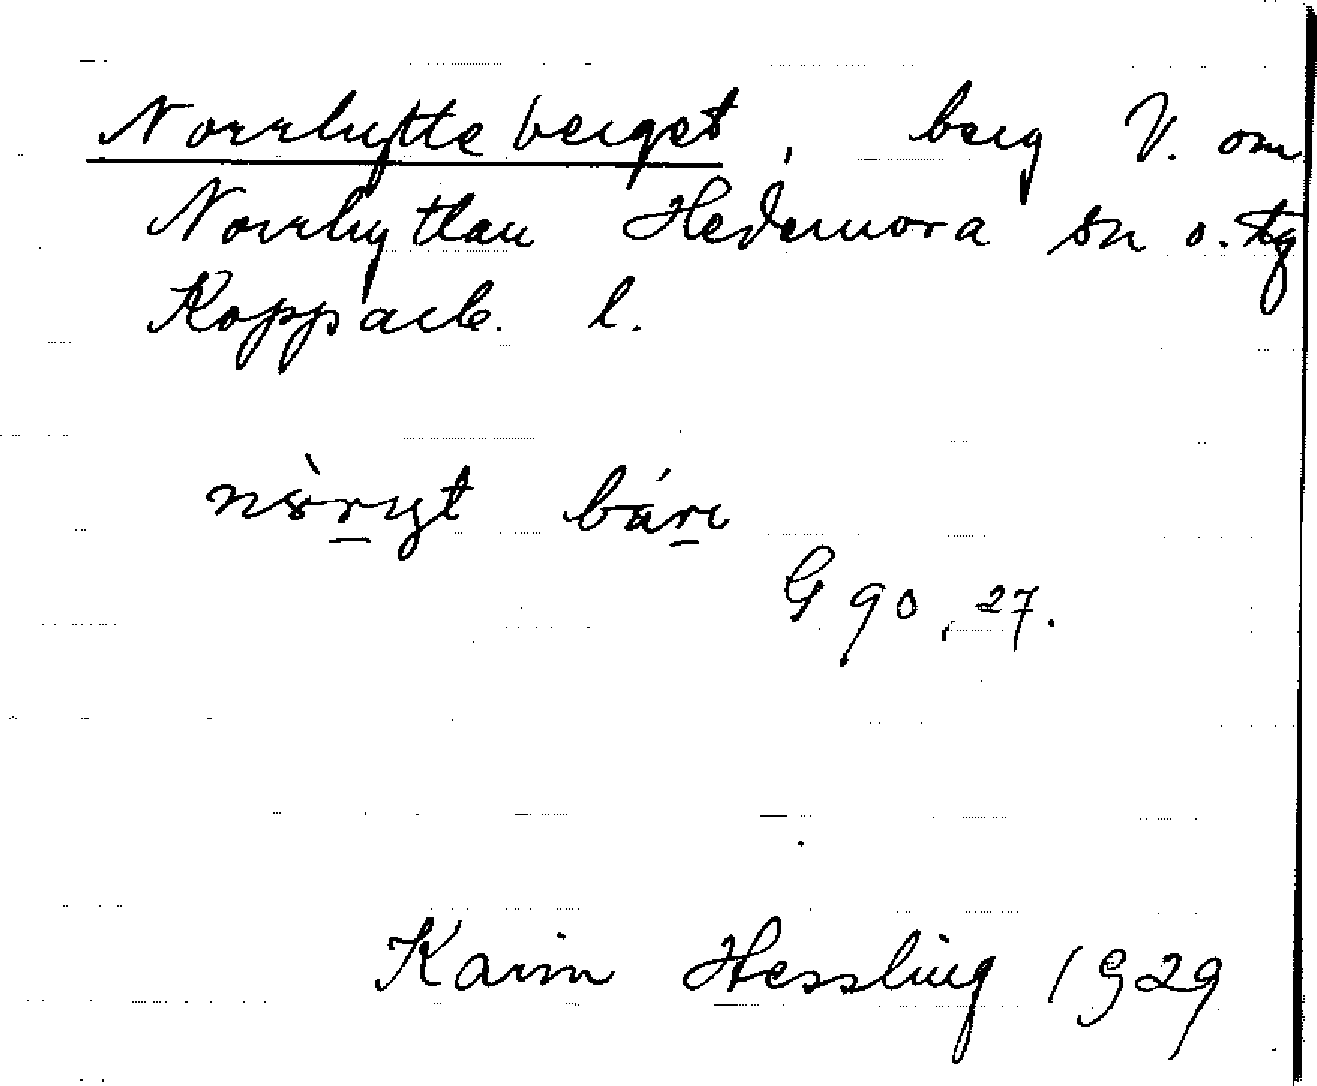 Norrhytteberget, berg V. om
Norrhyttan Hedemora sn o. tg
Kopparb. l.
G 90, 27.
Karin Hessling 1929